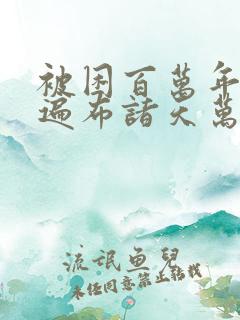 被困百萬年
遍布諸天萬
流氓鱼兒
未经同意禁止转载